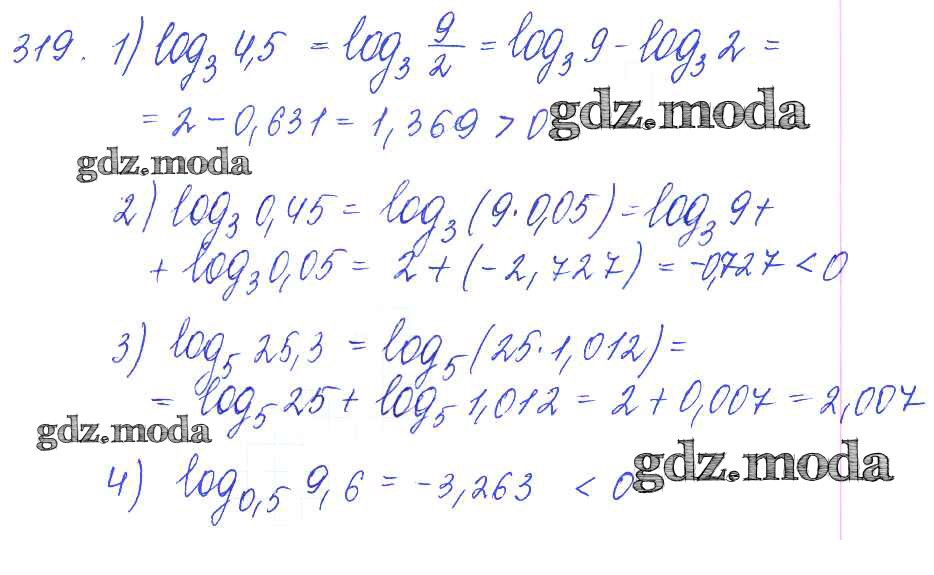 319. 1) log₃ 4,5 = log₃ 9/2 = log₃ 9 - log₃ 2 =
= 2 - 0,631 = 1,369 > 0
gdz.moda
gdz.moda
2) log₃ 0,45 = log₃ (9·0,05) = log₃ 9 +
+ log₃ 0,05 = 2 + (-2,727) = -0,727 < 0
3) log₅ 25,3 = log₅ (25·1,012) =
= log₅ 25 + log₅ 1,012 = 2 + 0,007 = 2,007
gdz.moda
4) log₀,₅ 9,6 = -3,263 < 0
gdz.moda